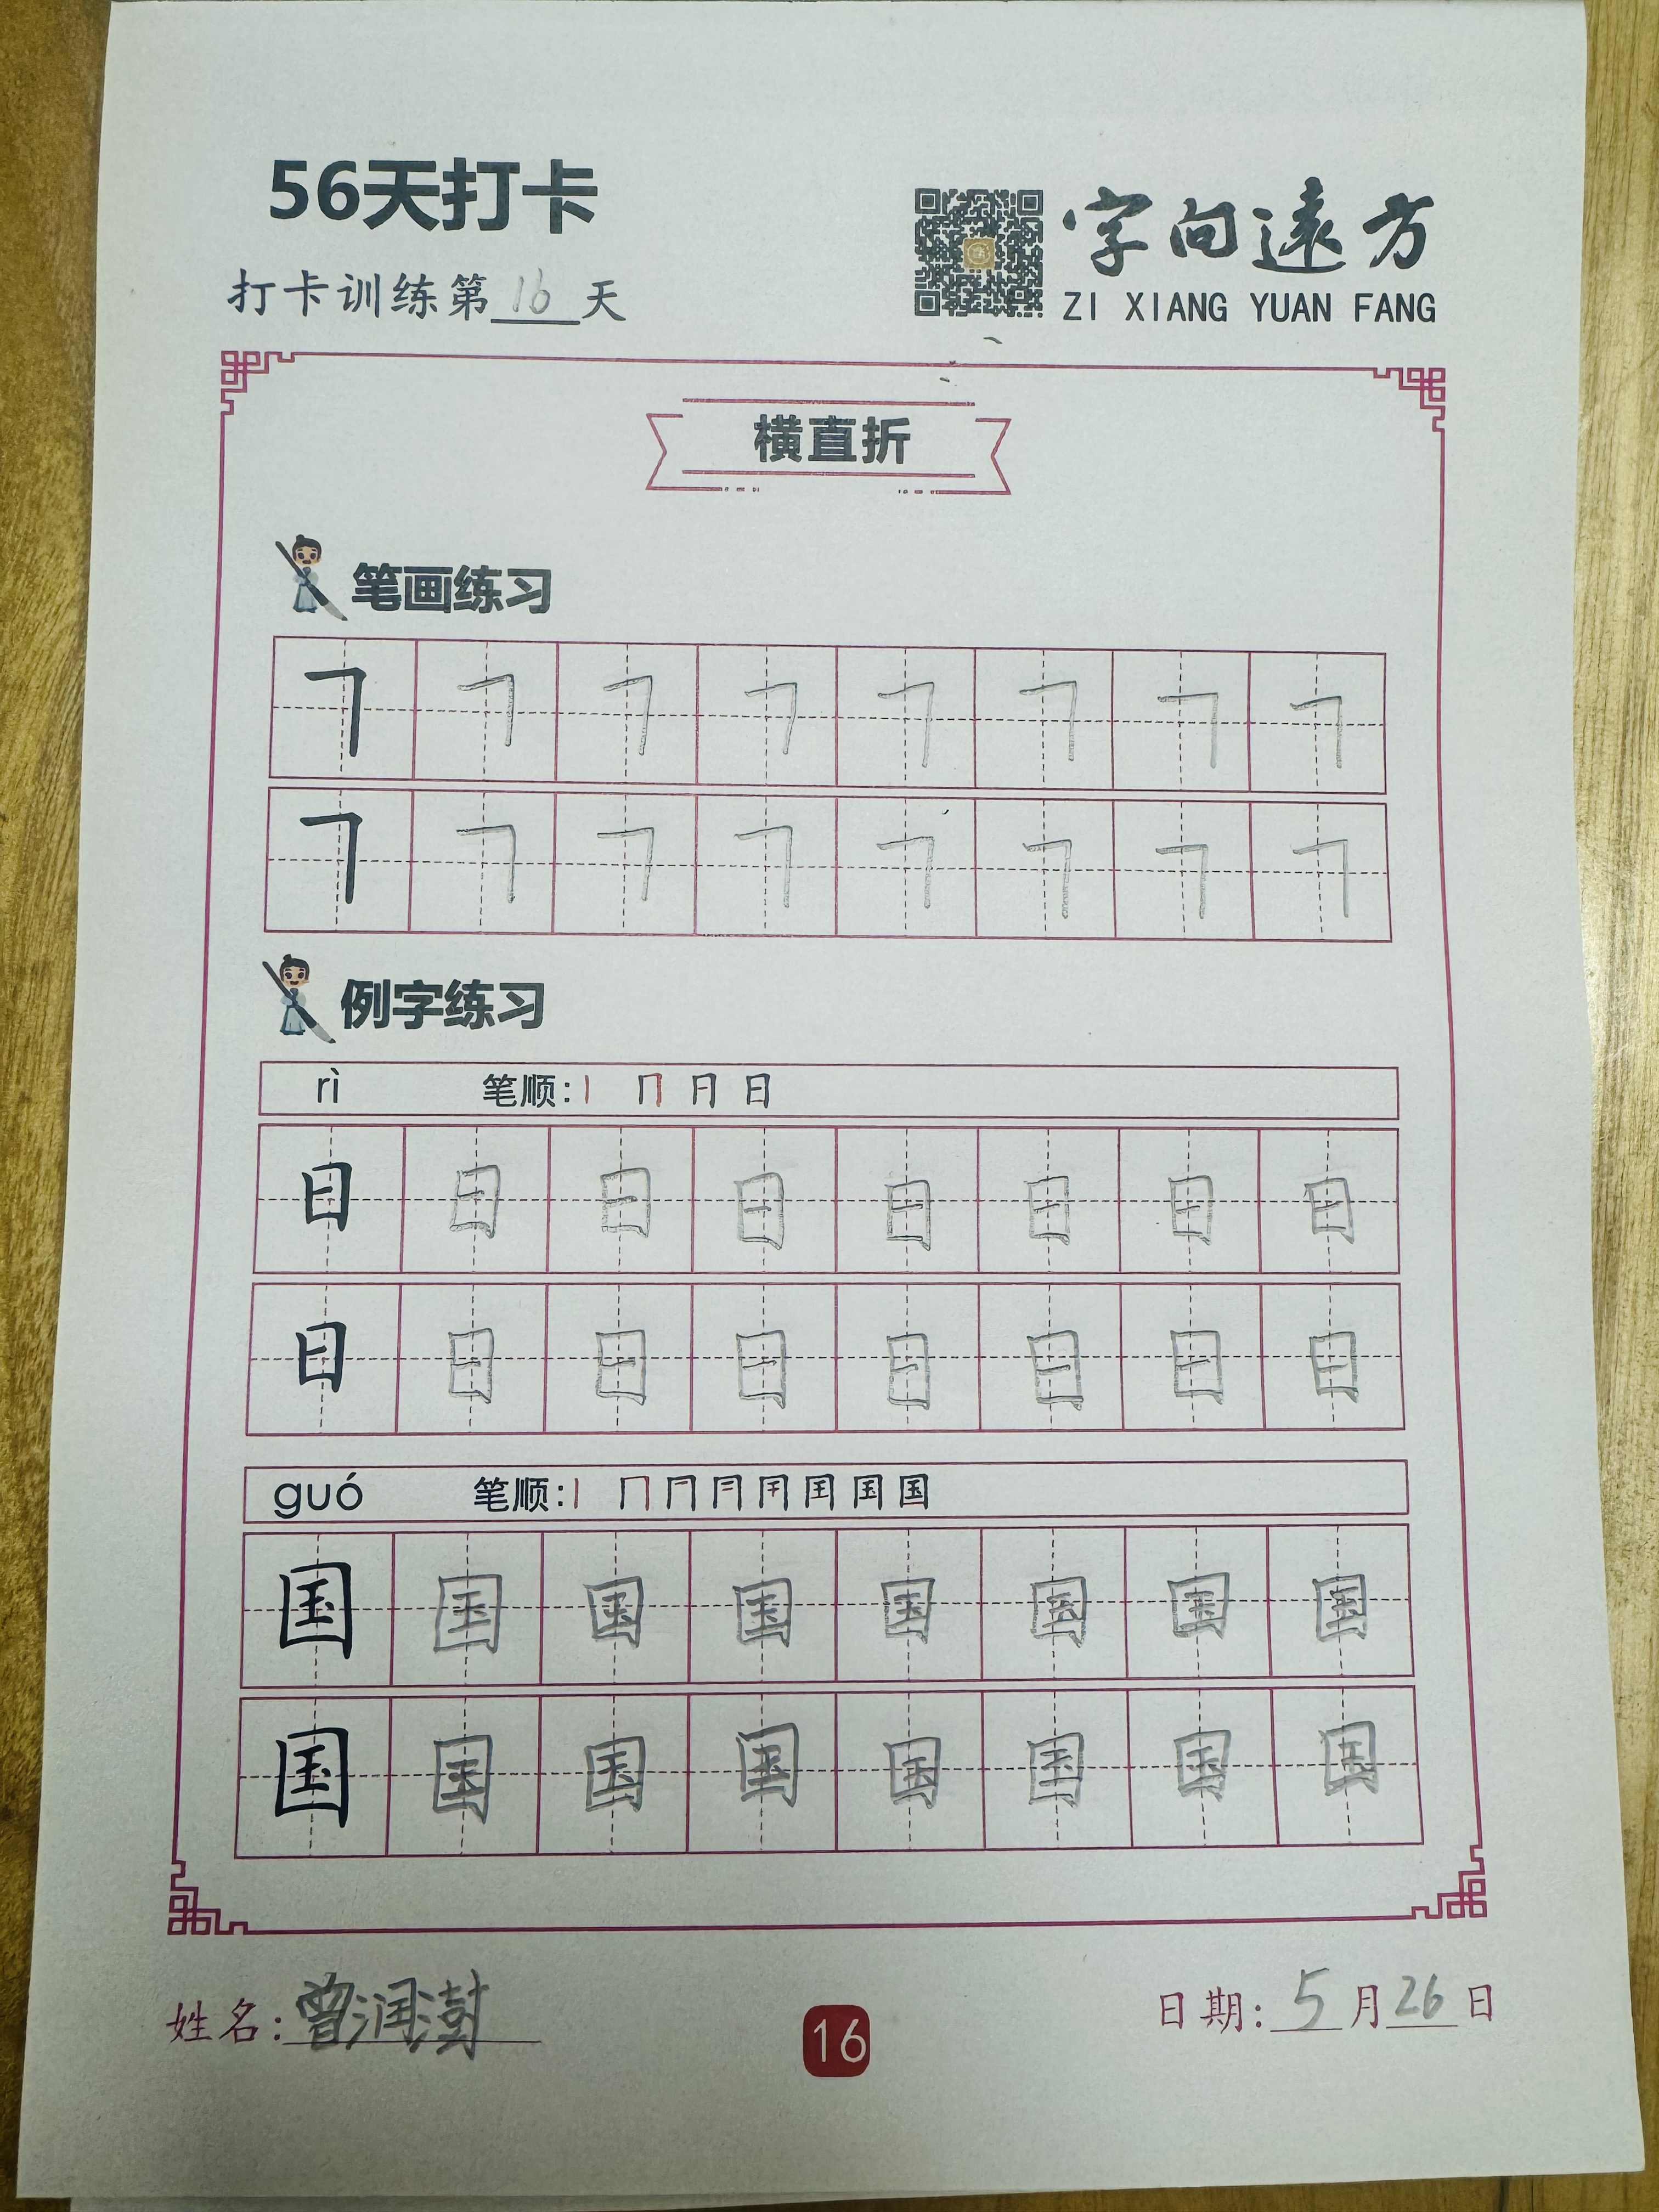 56天打卡
字向遠方
打卡训练第16天
ZI XIANG YUAN FANG
横直折
笔画练习
㇕ ㇕ ㇕ ㇕ ㇕ ㇕ ㇕ ㇕
㇕ ㇕ ㇕ ㇕ ㇕ ㇕ ㇕ ㇕
例字练习
rì 笔顺: 丨 冂 日 日
日 日 日 日 日 日 日 日
日 日 日 日 日 日 日 日
guó 笔顺: 丨 冂 国
国 国 国 国 国 国 国 国
国 国 国 国 国 国 国 国
姓名: 曾润澍
16
日期: 5月26日